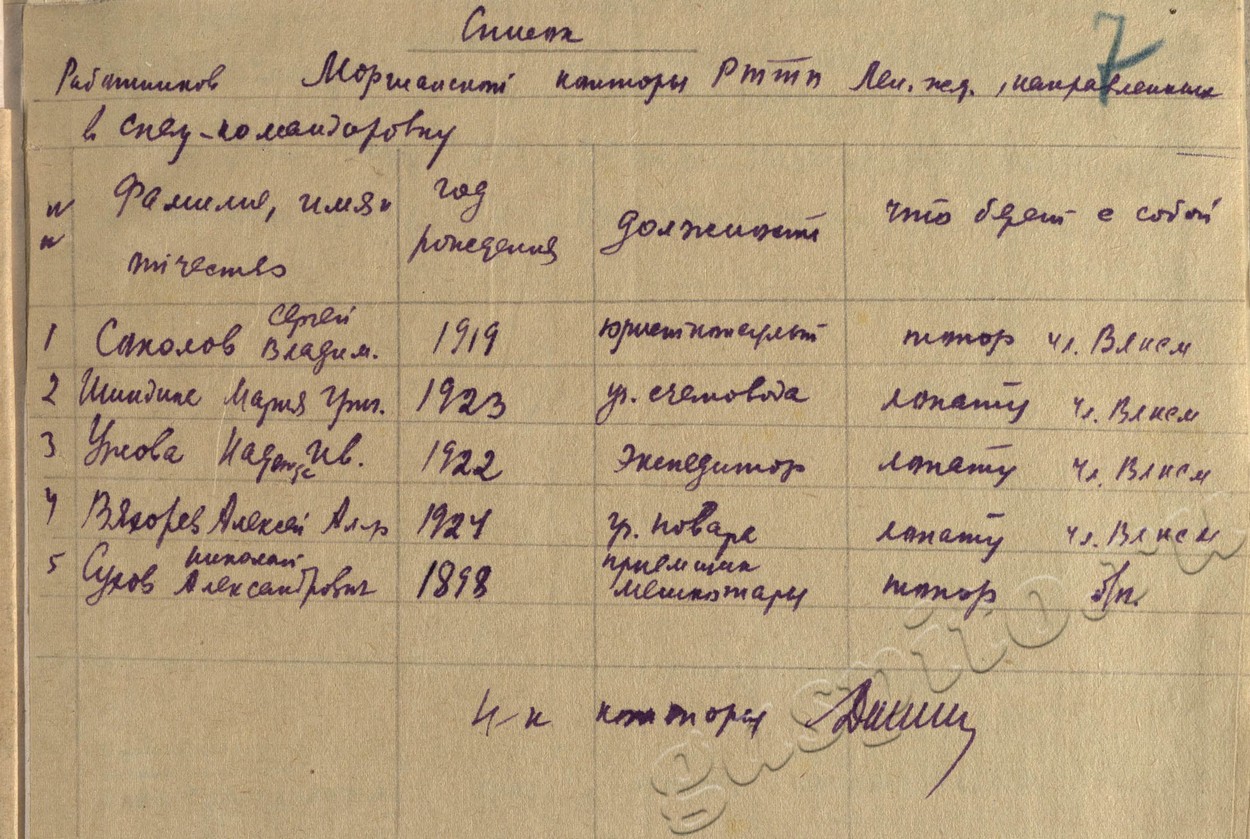 Список 7
Работников Моршанской конторы РТТП Лен. жд., направленных
в спец-командировку
Фамилия, имя и год должность что берет с собой
отчество рождения
1 Соколов Сергей Владим. 1919 юристконсульт топор чл. Влксм
2 Шиндина Мария Григ. 1923 уч. счетовода лопату чл. Влксм
3 Ужова Надежда Ив. 1922 Экспедитор лопату чл. Влксм
4 Алексей 1924 уч. повара лопату чл. Влксм
5 Сухов Николай Александрович 1898 приемщик мешкотары топор б/п.
Н-к конторы
gaspito.ru